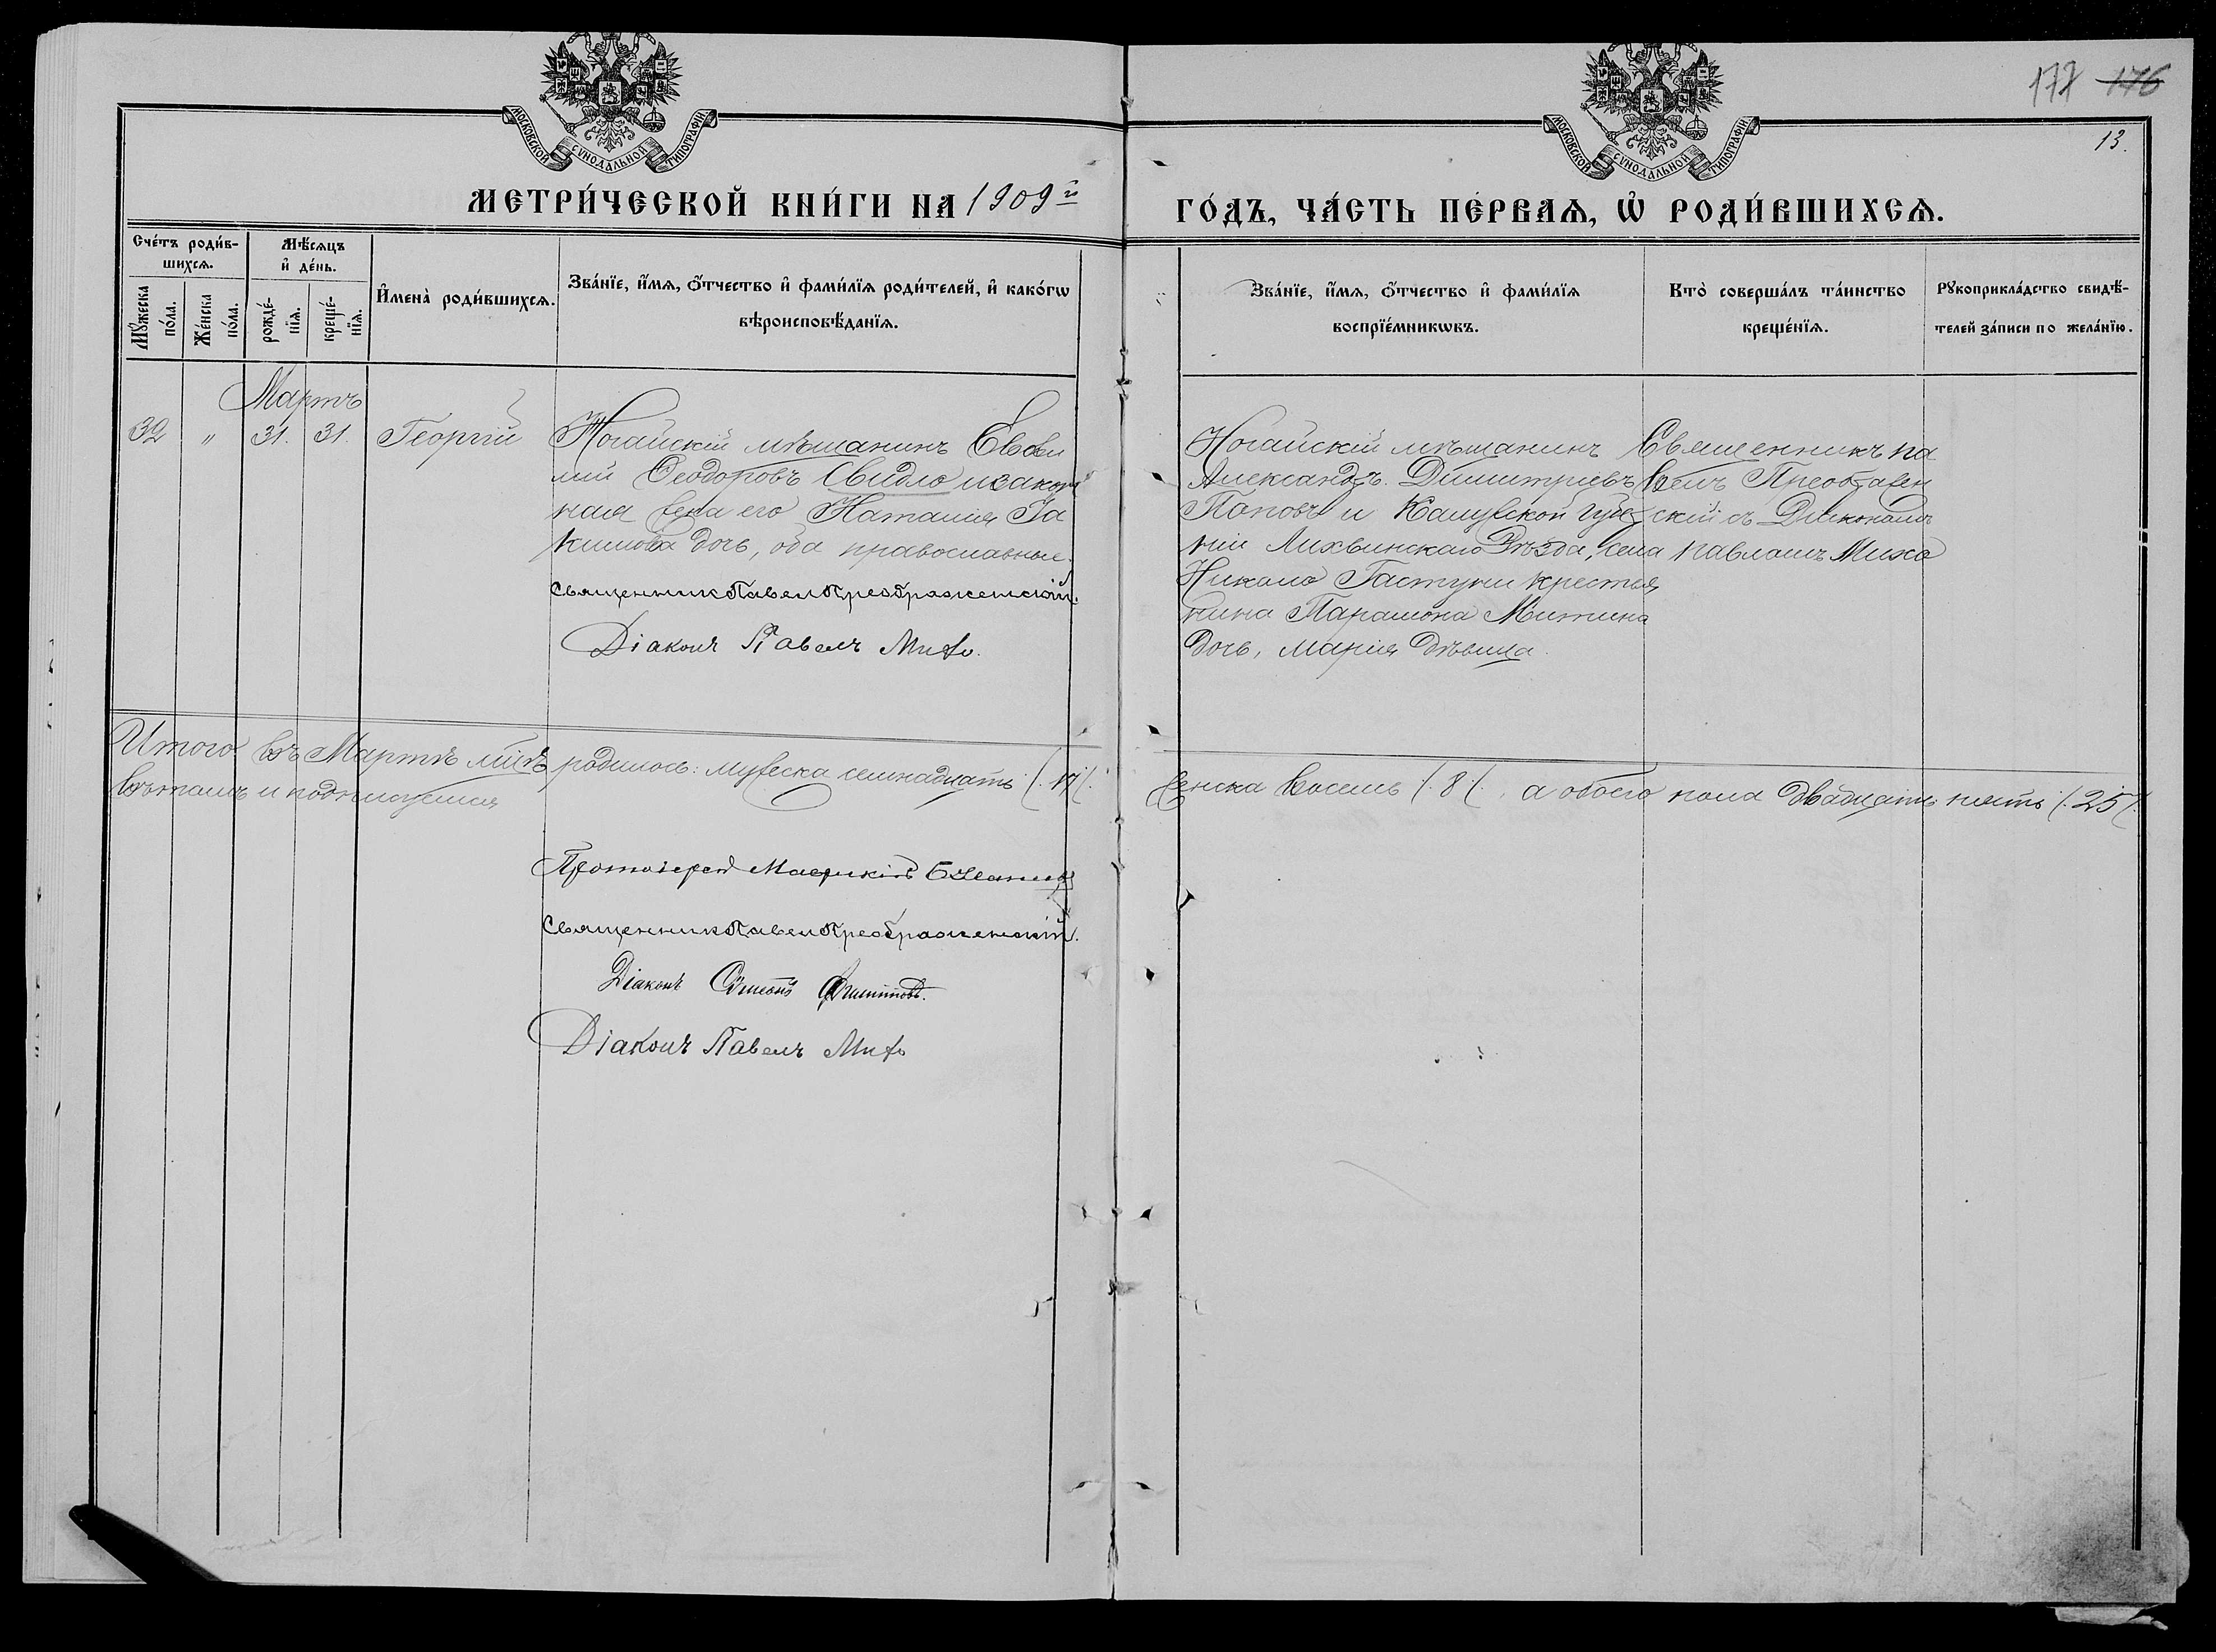 МОСКОВСКОЙ СѴНОДАЛЬНОЙ ТИПОГРАФІИ
МОСКОВСКОЙ СѴНОДАЛЬНОЙ ТИПОГРАФІИ
177 176
13.
МЕТРИ́ЧЕСКОЙ КНИ́ГИ НА 1909й
ГО́ДЪ, ЧА́СТЬ ПЕ́РВАѦ, Ѡ҆ РОДИ́ВШИХСѦ.
Сче́тъ роди́в-
шихсѧ.
Мꙋ́жеска
по́ла.
Же́нска
по́ла.
Мѣ́сѧцъ
и҆ де́нь.
рожде́-
нїѧ.
креще́-
нїѧ.
И҆мена̀ роди́вшихсѧ.
Зва́нїе, и҆́мѧ, ѻ҆́тчество и҆ фами́лїѧ роди́телей, и҆ како́гѡ
вѣроисповѣ́данїѧ.
Зва́нїе, и҆́мѧ, ѻ҆́тчество и҆ фами́лїѧ
воспрїе́мникѡвъ.
Кто̀ соверша́лъ та́инство
креще́нїѧ.
Рꙋкоприкла́дство свидѣ́-
телей за́писи по жела́нїю.
Мартъ
32 " 31. 31. Георгій
Ногайскій мѣщанинъ Евѳи
мій Ѳеодоровъ Свидло и закон
ная жена его Наталія Іа
кимова дочь, оба православные.
Священник Павел Преображенскій.
Діаконъ Павелъ Михо.
Ногайскій мѣщанинъ
Александръ Димитріевъ
Поповъ и Калужской губер
ніи Лихвинскаго Уѣзда, села
Николо Гастуни крестья
нина Парамона Митина
дочь, Марія дѣвица.
Священникъ Па
велъ Преображен
скій съ Діакономъ
Павломъ Михо
Итого въ Мартѣ мцѣ родилось: мужеска семнадцать /. 17 /.
женска восемь /. 8 /. а обоего пола двадцать пять /. 25 /.
въ томъ и подписуемся
Протоіерей
Священник Павел Преображенскій.
Діаконъ Сѵмеонъ Филипповъ.
Діаконъ Павелъ Михо